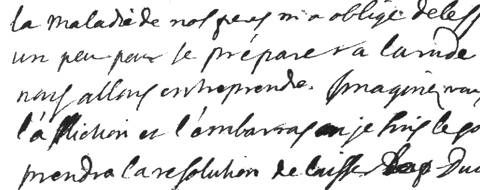 la maladie de nos peres m'a obligé de les
un peu pour se préparer a la rude
nous allons entreprende. Imaginez vou
l'afliction et l'embarras je suis le
prendra la resolution de laisser Duc